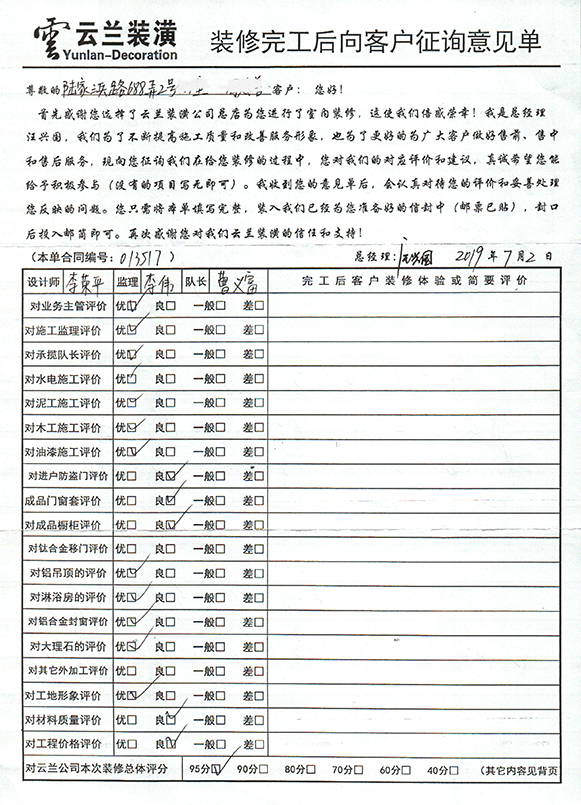 雲 云兰装潢
Yunlan-Decoration
装修完工后向客户征询意见单
尊敬的陆家浜路688弄2号 客户： 您好！
首先感谢您选择了云兰装潢公司总店为您进行了室内装修，这使我们倍感荣幸！我是总经理
汪兴国，我们为了不断提高施工质量和改善服务形象，也为了更好的为广大客户做好售前、售中
和售后服务，现向您征询我们在给您装修的过程中，您对我们的对应评价和建议，真诚希望您能
给予积极参与（没有的项目写无即可）。我收到您的意见单后，会认真对待您的评价和妥善处理
您反映的问题。您只需将本单填写完整，装入我们已经为您准备好的信封中（邮票已贴），封口
后投入邮筒即可。再次感谢您对我们云兰装潢的信任和支持！
（本单合同编号：013517 ） 总经理：汪兴国 2019年7月2日
设计师 李荣平 监理 李伟 队长 曹义富 完工后客户装修体验或简要评价
对业务主管评价 优☑ 良□ 一般□ 差□
对施工监理评价 优☑ 良□ 一般□ 差□
对承揽队长评价 优☑ 良□ 一般□ 差□
对水电施工评价 优☑ 良□ 一般□ 差□
对泥工施工评价 优☑ 良□ 一般□ 差□
对木工施工评价 优☑ 良□ 一般□ 差□
对油漆施工评价 优☑ 良□ 一般□ 差□
对进户防盗门评价 优□ 良☑ 一般□ 差□
成品门窗套评价 优□ 良☑ 一般□ 差□
对成品橱柜评价 优□ 良☑ 一般□ 差□
对钛合金移门评价 优□ 良□ 一般□ 差□
对铝吊顶的评价 优☑ 良□ 一般□ 差□
对淋浴房的评价 优☑ 良□ 一般□ 差□
对铝合金封窗评价 优☑ 良□ 一般□ 差□
对大理石的评价 优☑ 良□ 一般□ 差□
对其它外加工评价 优□ 良□ 一般□ 差□
对工地形象评价 优☑ 良□ 一般□ 差□
对材料质量评价 优□ 良☑ 一般□ 差□
对工程价格评价 优□ 良☑ 一般□ 差□
对云兰公司本次装修总体评分 95分☑ 90分□ 80分□ 70分□ 60分□ 40分□ （其它内容见背页